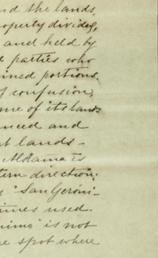 nd the lands
operty divided,
and held by
d parties who
ined portions
of confusion,
me of its land-
need and
t lands -
Aldama is
tern direction.
"San Geroni-
imes used
nimo" is not
he spot where